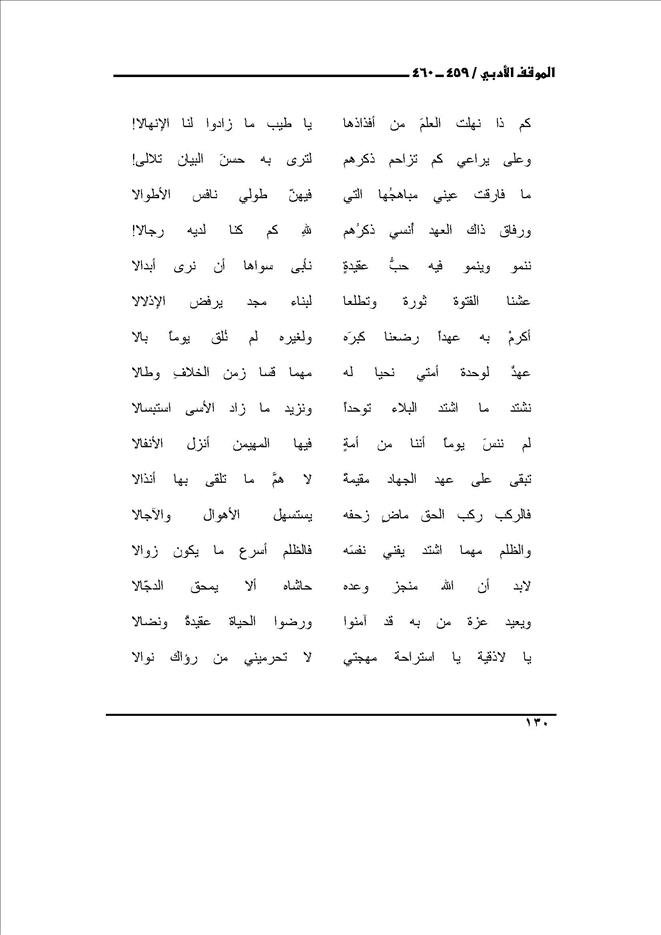 الموقف الأدبي / ٤٥٩ ــ ٤٦٠
كم ذا نهلت العلمَ من أفذاذها يا طيب ما زادوا لنا الإنهالا!
وعلى يراعي كم تزاحم ذكرهم لترى به حسنَ البيان تلالى!
ما فارقت عيني مباهجُها التي فيهنّ طولي نافس الأطوالا
ورفاق ذاك العهد أنسي ذكرُهم للهِ كم كنا لديه رجالا!
ننمو وينمو فيه حبُّ عقيدةٍ نأبى سواها أن نرى أبدالا
عشنا الفتوة ثورة وتطلعا لبناء مجد يرفض الإذلالا
أكرمْ به عهداً رضعنا كبرَه ولغيره لم نُلق يوماً بالا
عهدٌ لوحدة أمتي نحيا له مهما قسا زمن الخلافِ وطالا
نشتد ما اشتد البلاء توحداً ونزيد ما زاد الأسى استبسالا
لم ننسَ يوماً أننا من أمةٍ فيها المهيمن أنزل الأنفالا
تبقى على عهد الجهاد مقيمةً لا همَّ ما تلقى بها أنذالا
فالركب ركب الحق ماضٍ زحفه يستسهل الأهوال والآجالا
والظلم مهما اشتد يفني نفسَه فالظلم أسرع ما يكون زوالا
لابد أن الله منجز وعده حاشاه ألا يمحق الدجّالا
ويعيد عزة من به قد آمنوا ورضوا الحياة عقيدةً ونضالا
يا لاذقية يا استراحة مهجتي لا تحرميني من رؤاك نوالا
١٣٠